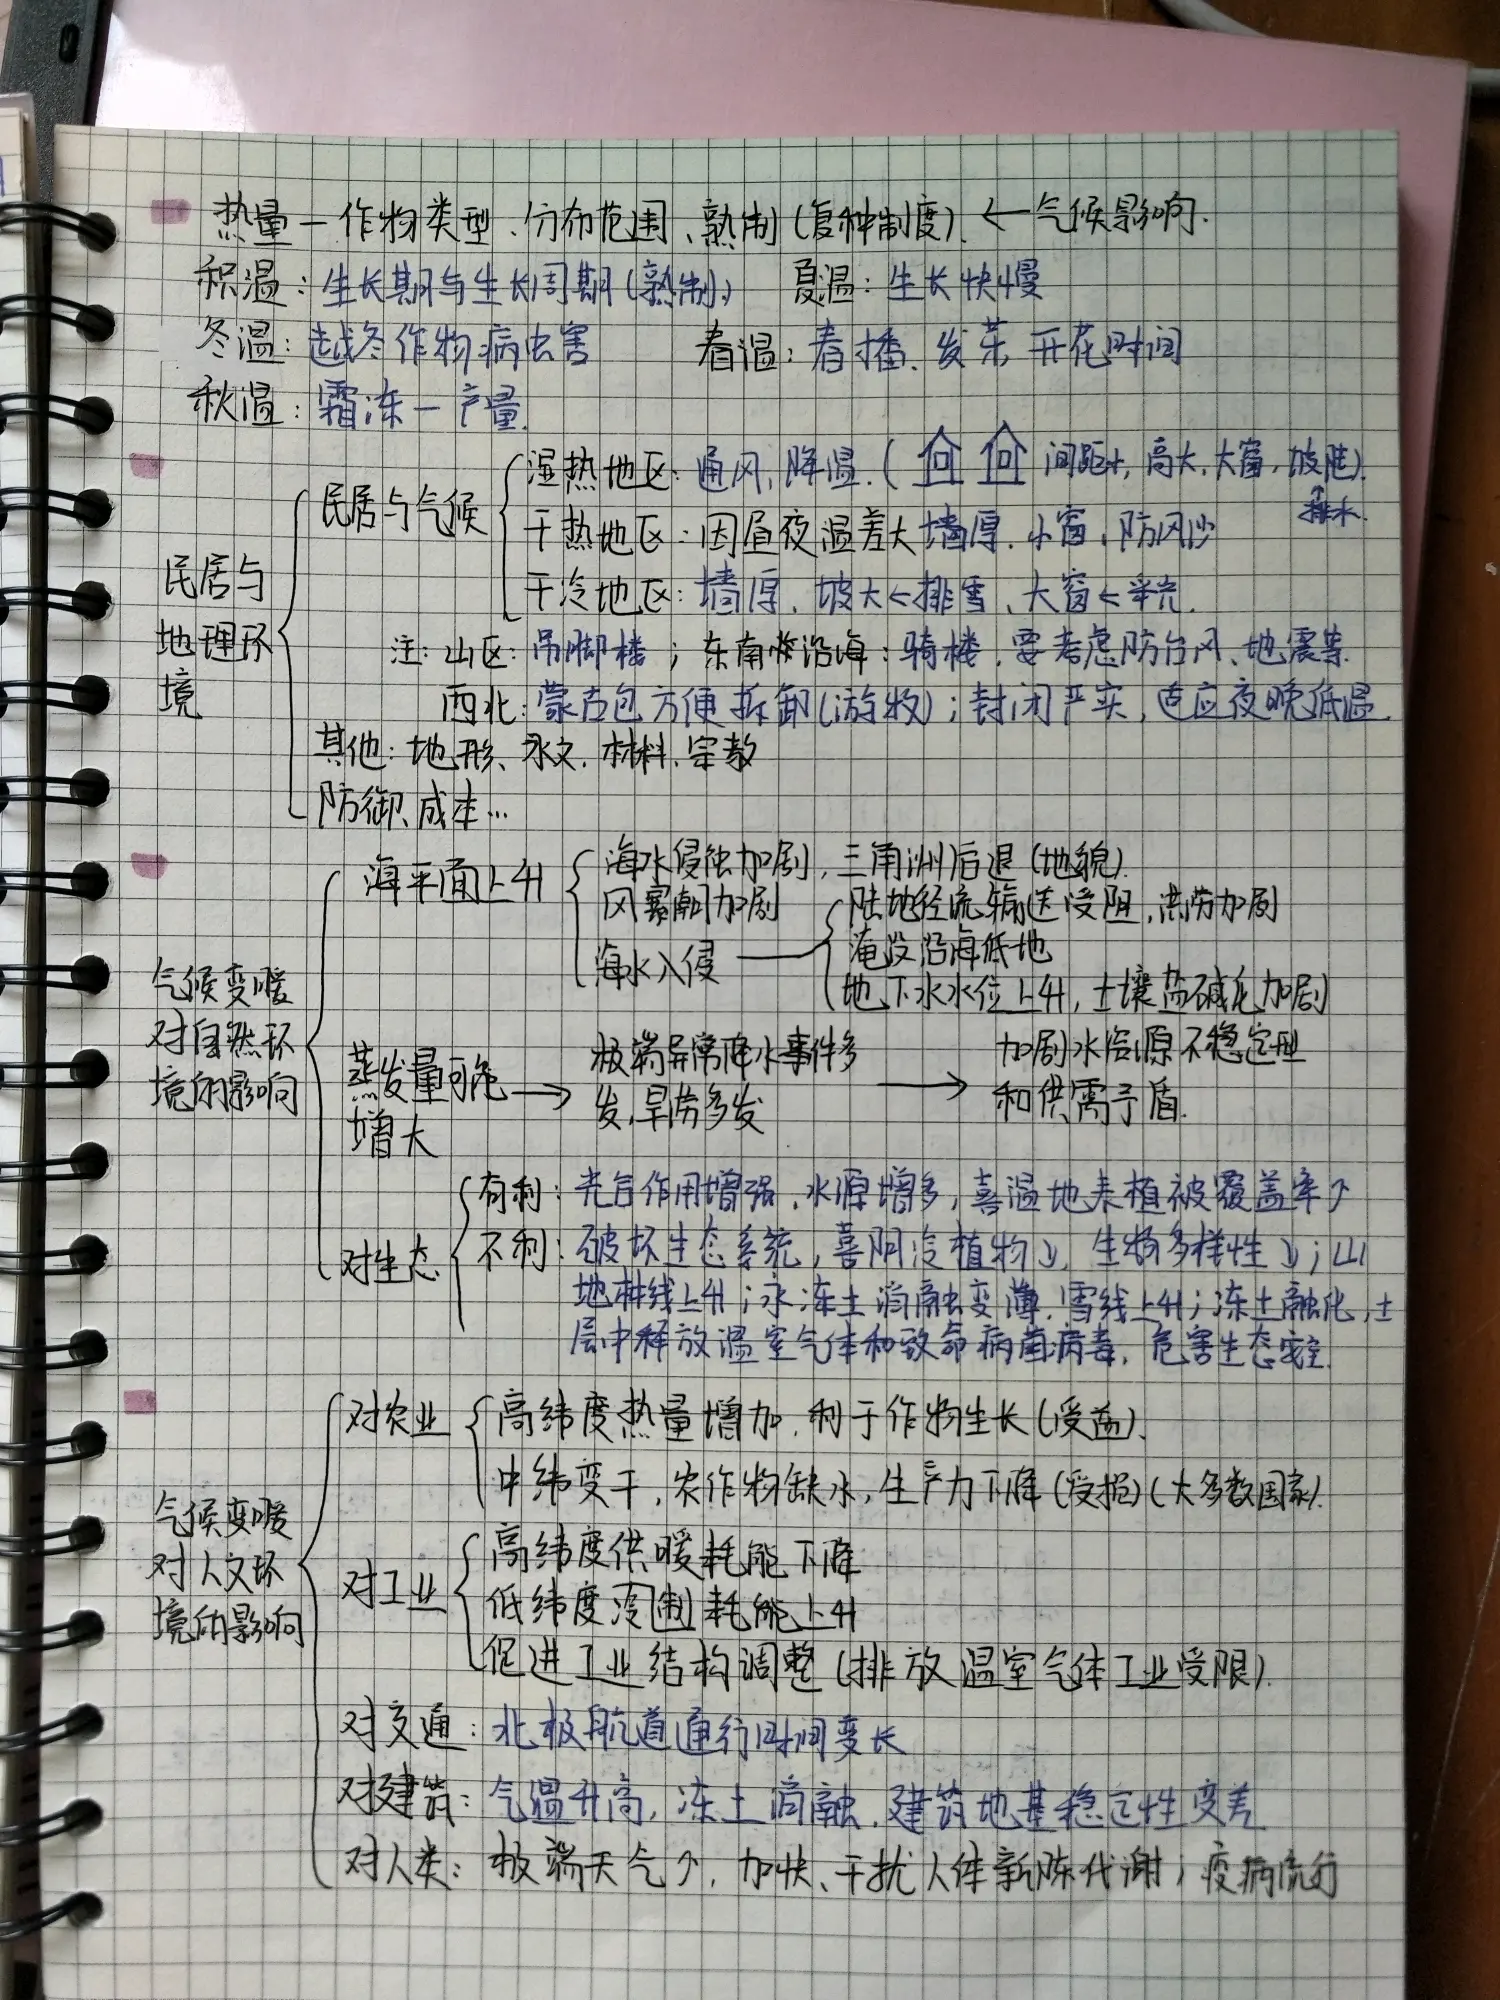 热量—作物类型、分布范围、熟制(复种制度). ←气候影响.
积温:生长期与生长周期(熟制) 夏温:生长快慢
冬温:越冬作物病虫害 春温:春播、发芽、开花时间
秋温:霜冻—产量.
民居与地理环境
民居与气候
湿热地区:通风,降温.( 间距大,高大,大窗,坡陡).
↑排水.
干热地区:因昼夜温差大墙厚.小窗,防风沙
干冷地区:墙厚、坡大←排雪、大窗←采光.
注:山区:吊脚楼;东南 沿海:骑楼.要考虑防台风、地震等.
西北:蒙古包方便拆卸(游牧);封闭严实,适应夜晚低温.
其他:地形、水文.材料.宗教
防御、成本…
气候变暖对自然环境的影响
海平面上升
海水侵蚀加剧,三角洲后退(地貌).
风暴潮加剧
海水入侵
陆地径流输送受阻,洪涝加剧
淹没沿海低地
地下水水位上升,土壤盐碱化加剧
蒸发量可能增大 → 极端异常降水事件多发,旱涝多发 → 加剧水资源不稳定型和供需矛盾.
对生态
有利:光合作用增强.水源增多,喜温地表植被覆盖率↑
不利:破坏生态系统,喜阴冷植物↓,生物多样性↓;山
地林线上升;永冻土消融变薄.雪线上升;冻土融化,土
层中释放温室气体和致命病菌病毒,危害生态安全.
气候变暖对人文环境的影响
对农业
高纬度热量增加.利于作物生长(受益).
中纬变干,农作物缺水,生产力下降(受损)(大多数国家).
对工业
高纬度供暖耗能下降
低纬度冷制耗能上升
促进工业结构调整(排放温室气体工业受限).
对交通:北极航道通行时间变长
对建筑:气温升高,冻土消融.建筑地基稳定性变差
对人类:极端天气↑,加快、干扰人体新陈代谢;疫病流行